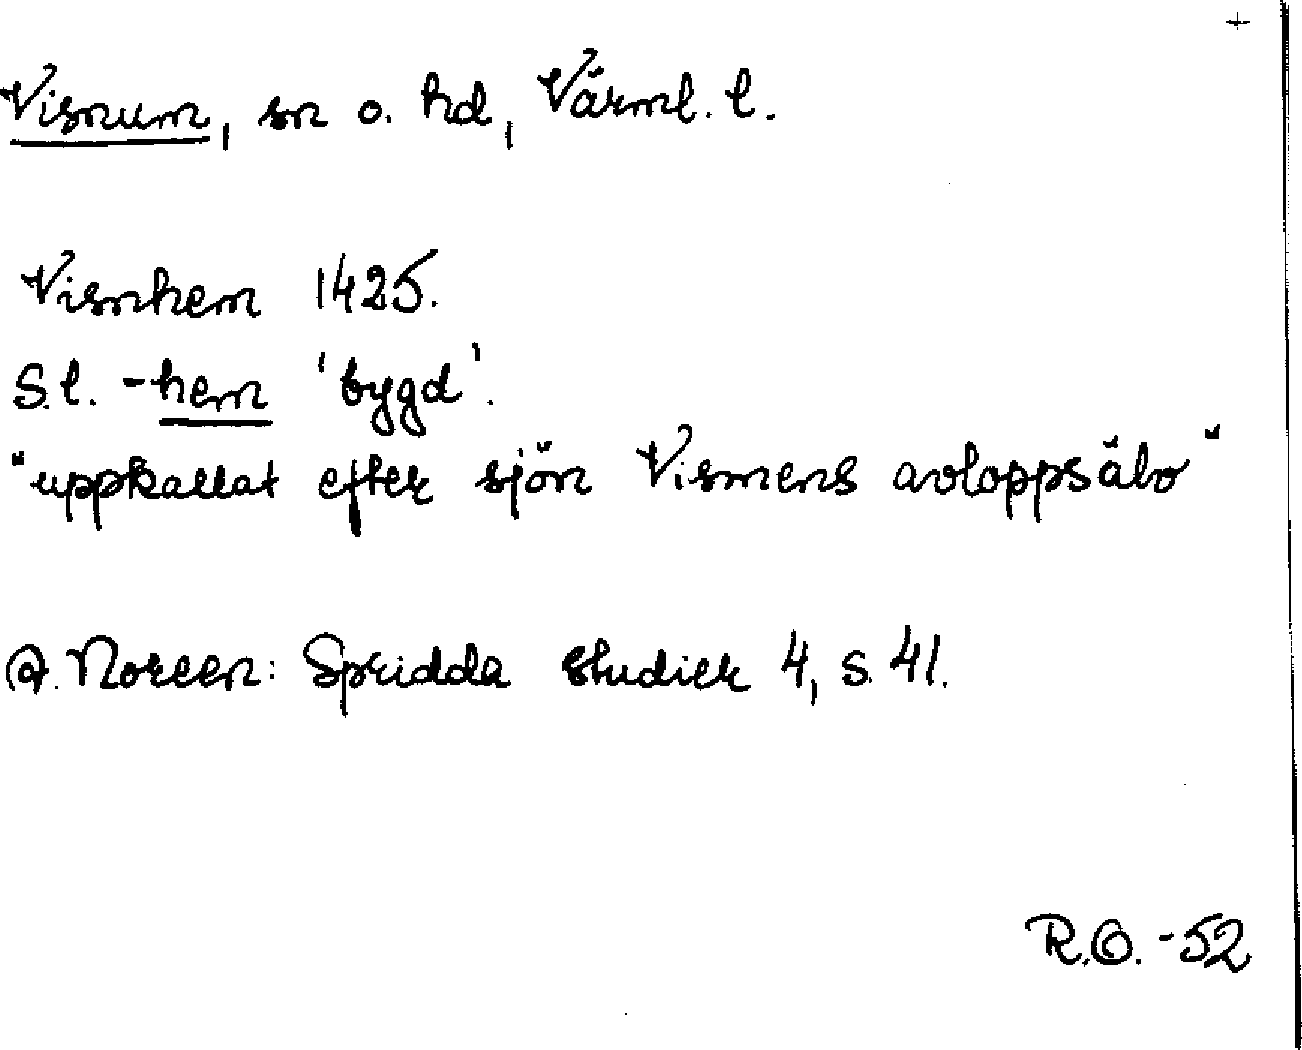 Visnum, sn o. hd, Värml. l.
Visnhem 1425.
S.l. -hem 'bygd'.
"uppkallat efter sjön Vismens avloppsälv"
A. Noreen: Spridda studier 4, s. 41.
R.O. -52